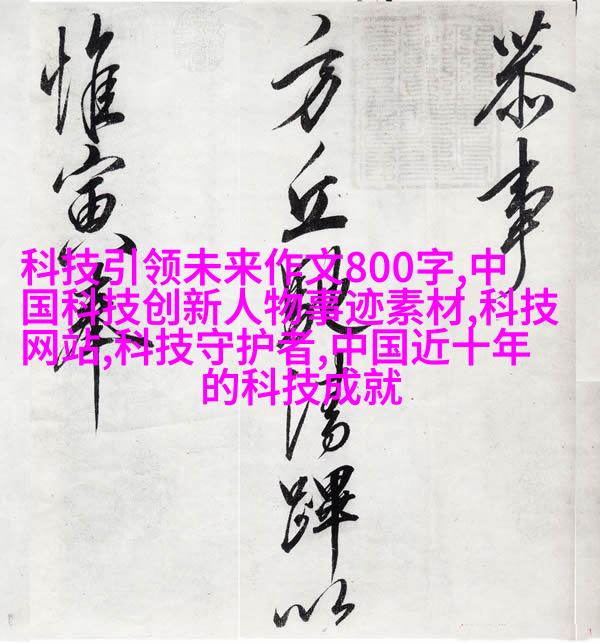 恭事
方丘清蹕以
惟寅奉
科技引领未来作文800字,中
国科技创新人物事迹素材,科技
网站,科技守护者,中国近十年
的科技成就